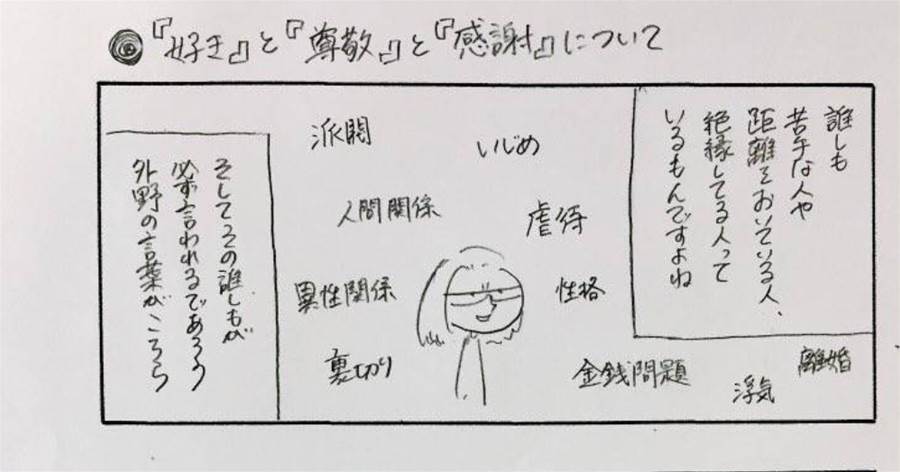 『好き』と『尊敬』と『感謝』について
誰しも
苦手な人や
距離をおいている人、
絶縁してる人って
いるもんですよね
派閥
いじめ
人間関係
虐待
異性関係
性格
裏切り
金銭問題
浮気
離婚
そしてその誰しもが
必ず言われるであろう
外野の言葉がこちら